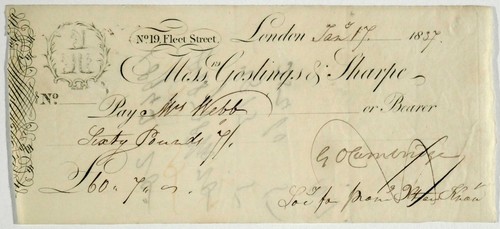 No. 19, Fleet Street, London Jany 17. 1837.
Messrs Goslings & Sharpe
No.
Pay Mrs Webb or Bearer
Sixty Pounds 7/.
G O Cambridge
£60 „ 7 „ 0.
Socy for prom